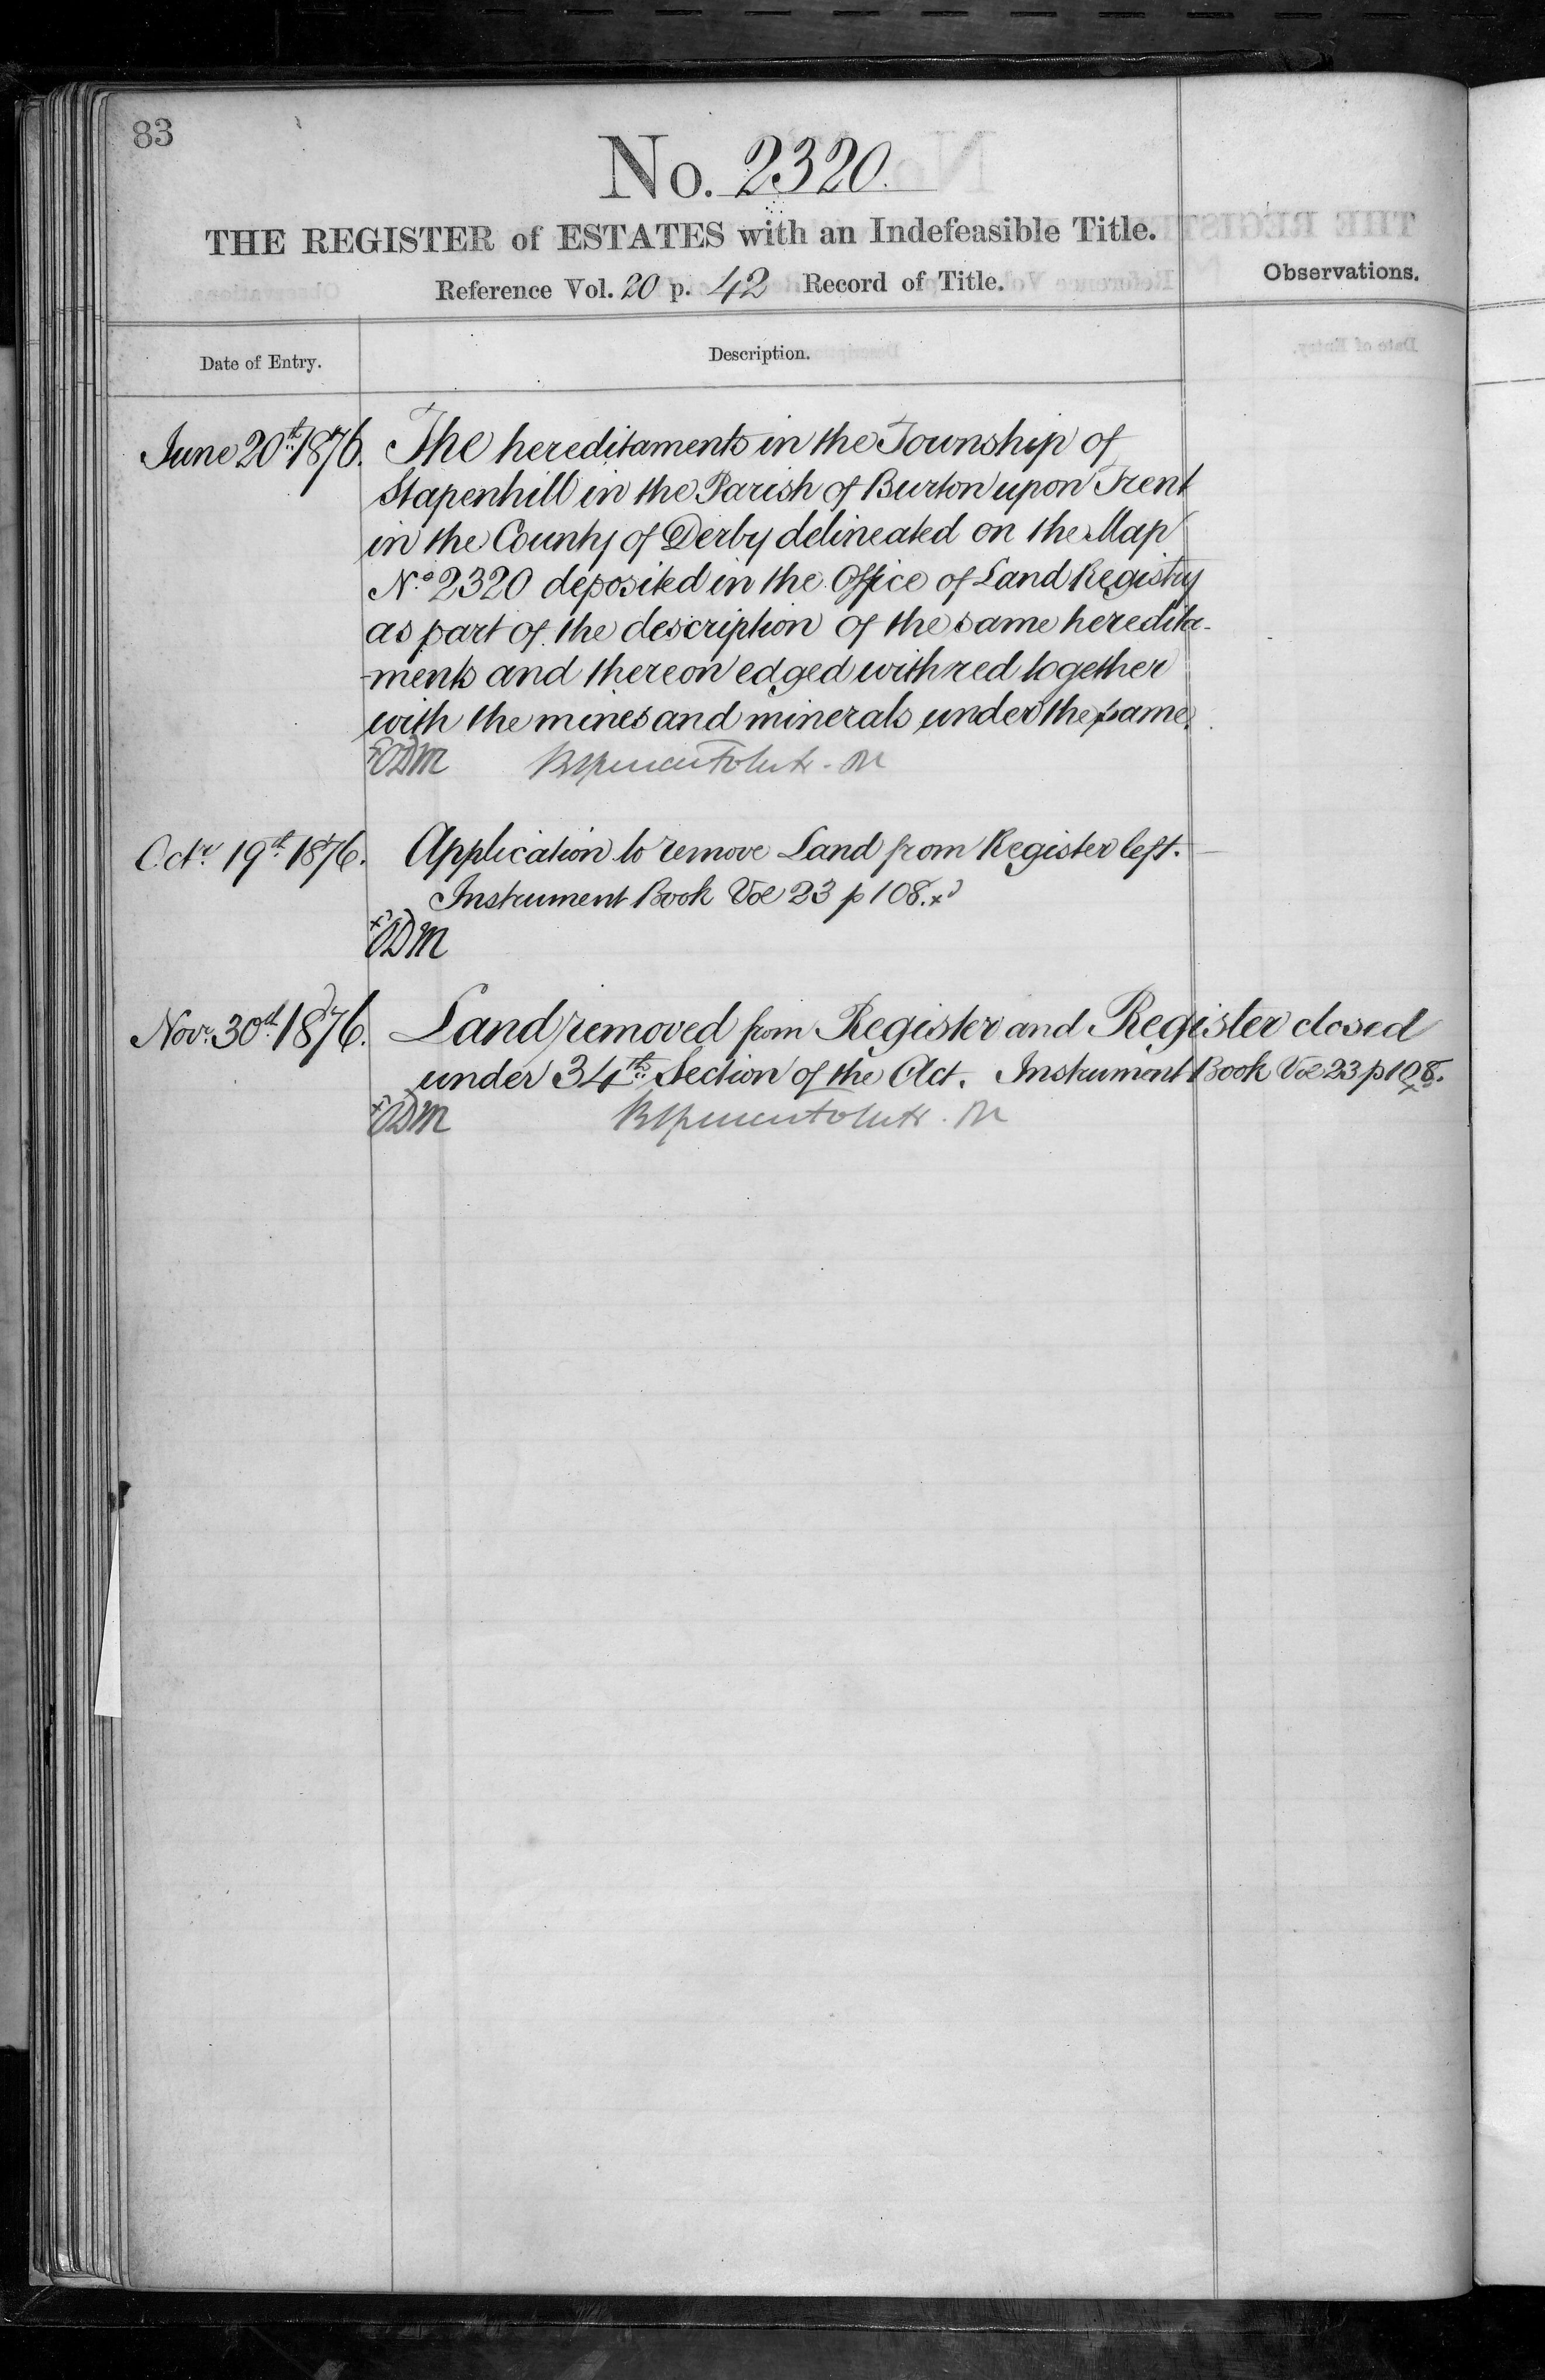 83
No. 2320.
THE REGISTER of ESTATES with an Indefeasible Title.
Reference Vol. 20 p. 42 Record of Title.
Observations.
Date of Entry.
Description.
June 20th 1876. The hereditaments in the Township of
Stapenhill in the Parish of Burton upon Trent
in the County of Derby delineated on the Map
No 2320 deposited in the Office of Land Registry
as part of the description of the same heredita-
-ments and thereon edged with red together
with the mines and minerals under the same.
Octr. 19th 1876. Application to remove Land from Register left.
Instrument Book Vol 23 p 108.
Novr. 30th 1876. Land removed from Register and Register closed
under 34th Section of the Act. Instrument Book Vol 23 p 108.